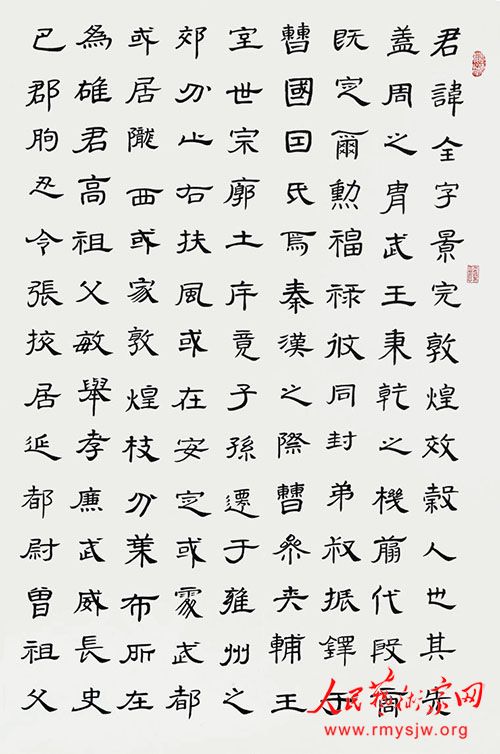 君諱全字景完敦煌效穀人也其先
蓋周之冑武王秉乾之機翦伐殷商
既定爾勳福祿攸同封弟叔振鐸于
曹國因氏焉秦漢之際曹參夾輔王
室世宗廓土斥竟子孫遷于雍州之
郊分止右扶風或在安定或處武都
或居隴西或家敦煌枝分葉布所在
為雄君高祖父敏舉孝廉武威長史
巴郡朐忍令張掖居延都尉曾祖父
人民藝術家网
www.rmysjw.org